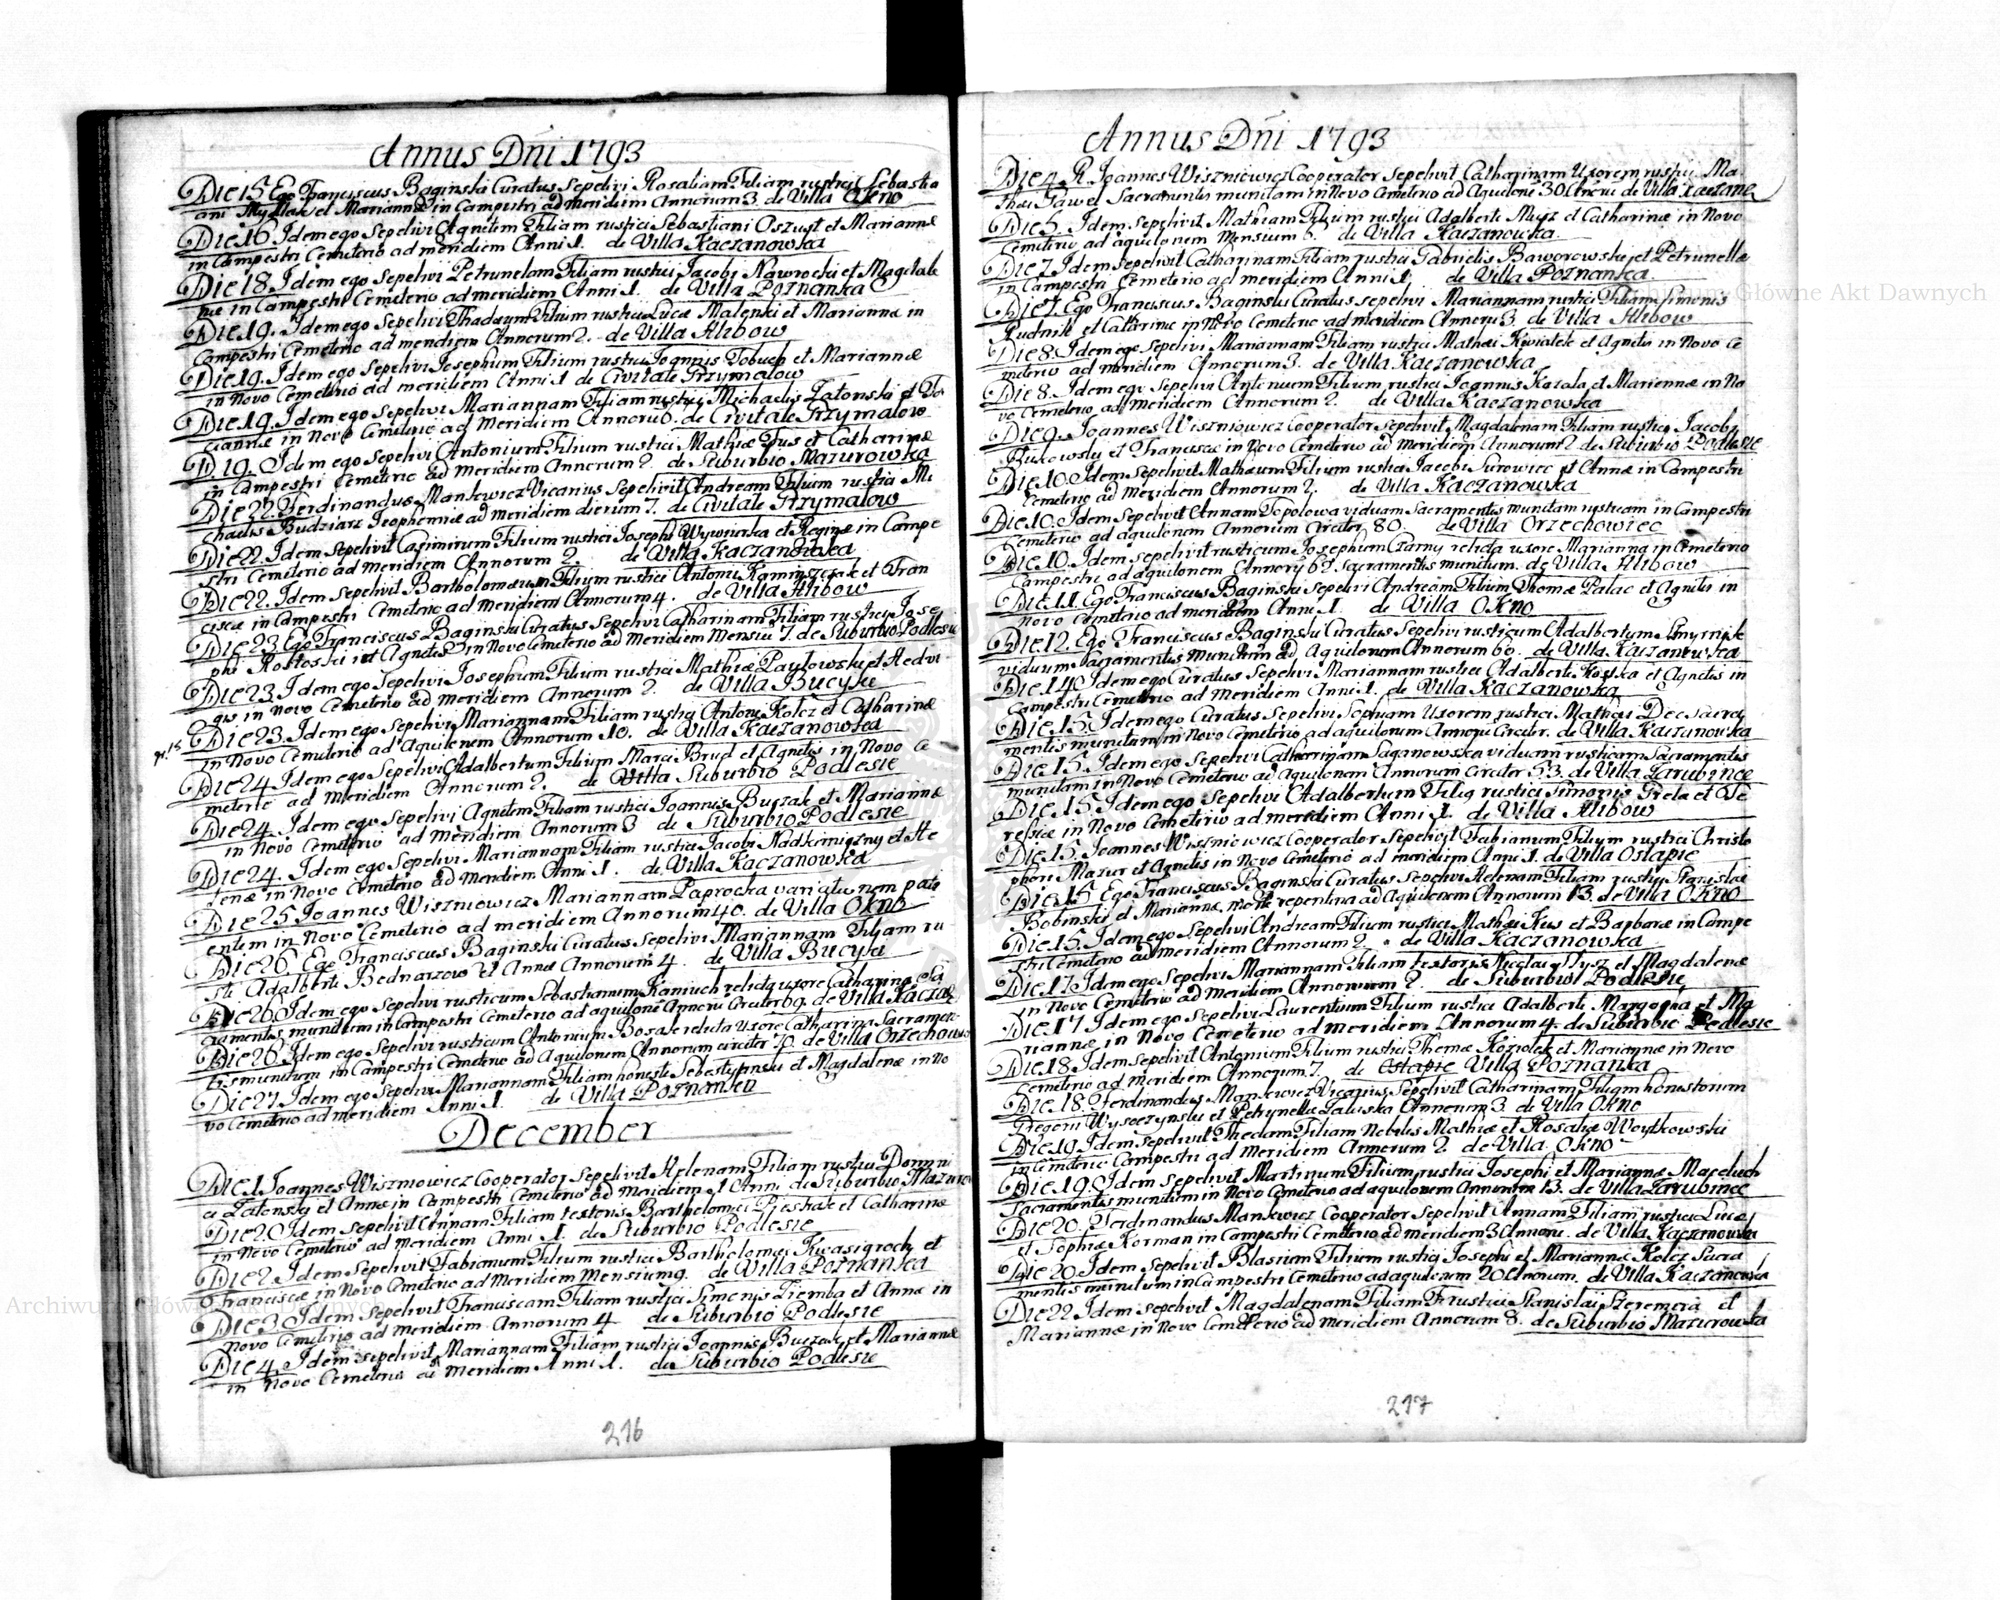 Annus Dni 1793
Die 15. Ego Franciscus Baginski Curatus Sepelivi Rosaliam Filiam rustici Sebastia
ani et Mariannæ in Campestri ad meridiem Annorum 3. de Villa Okno
Die 16 Idem ego Sepelivi Agnetem Filiam rustici Sebastiani Oszust et Mariannæ
in Campestri Cemeterio ad meridiem Anni 1. de Villa Kaczanowka
Die 18 Idem ego Sepelivi Petrunelam Filiam rustici Jacobi Nawrocki et Magdale
næ in Campestri Cemeterio ad meridiem Anni 1. de Villa Poznanka
Die 19. Idem ego Sepelivi Thadæum Filium rustici Lucæ Malenki et Mariannæ in
Campestri Cemeterio ad meridiem Annorum 2. de Villa Hlibow
Die 19. Idem ego Sepelivi Josephum Filium rustici Joannis et Mariannæ
in Novo Cemeterio ad meridiem Anni 1 de Civitate Grzymalow
Die 19. Idem ego Sepelivi Mariannam Filiam rustici Michaelis Latonski et
in Novo Cemeterio ad Meridiem Annoru 6. de Civitate Grzymalow
D 19. Idem ego Sepelivi Antonium Filium rustici Mathiæ Dus et Catharinæ
in Campestri Cemeterio ad Meridiem Annorum 2 de Suburbio Mazurowka
Die 22. Ferdinandus Mankiewicz Vicarius Sepelivit Andream Filium rustici Mi
chaelis Budziasz ad meridiem dierum 7. de Civitate Grzymalow
Die 22. Idem Sepelivit Casimirum Filium rustici Josephi et Reginæ in Campe
stri Cemeterio ad Meridiem Annorum 2. de Villa Kaczanowka
Die 22. Idem Sepelivit Bartholomæum Filium rustici Antoni et Fran
ciscæ in Campestri Cemeterio ad Meridiem Annorum 4. de Villa Hlibow
Die 23 Ego Franciscus Baginski Curatus Sepelivi Catharinam Filiam rustici Jose
phi et Agnetis in Novo Cemeterio ad Meridiem Mensiu 7. de Suburbio Podlesie
Die 23. Idem ego Sepelivi Josephum Filium rustici Mathiæ Pawlowski et Hedvi
gis, in Novo Cemeterio ad meridiem Annorum 2. de Villa Bucyki
Die 23. Idem ego Sepelivi Mariannam Filiam rustici Antoni Kolcz et Catharinæ
in Novo Cemeterio ad Aquilonem Annorum 10. de Villa Kaczanowka
Die 24 Idem ego Sepelivi Adalbertum Filium Marci Brud et Agnetis in Novo Ce
meterio ad Meridiem Annorum 2. de Villa Suburbio Podlesie
Die 24. Idem ego Sepelivi Agnetem Filiam rustici Joannis Burzak et Mariannæ
in Novo Cemeterio ad Meridiem Annorum 3 de Suburbio Podlesie
Die 24. Idem ego Sepelivi Mariannam Filiam rustici Jacobi et He
lenæ in Novo Cemeterio ad Meridiem Anni 1. de Villa Kaczanowka
Die 25. Joannes Wiszniowicz Mariannam Paprocka pati
entem in Novo Cemeterio ad meridiem Annorum 40. de Villa Okno
Die 26 Ego Franciscus Baginski Curatus Sepelivi Mariannam Filiam ru
stici Adalberti Bednarzow et Annæ Annorum 4. de Villa Bucyki
Die 26 Idem ego Sepelivi rusticum Sebastianum Kaniuch relicta uxore Catharina Sa
cramentis munitum in Campestri Cemeterio ad aquilone Annoru Circiter 69. de Villa Kaczan
Die 26 Idem ego Sepelivi rusticum Antonium Bosak relicta Uxore Catharina Sacramen
tis munitum in Campestri Cemeterio ad Aquilonem Annorum circiter 70. de Villa Orzechow
Die 27. Idem ego Sepelivi Mariannam Filiam honesti et Magdalenæ in No
vo Cemeterio ad meridiem Anni 1. de Villa Poznanka
December
Die 1 Joannes Wiszniowicz Cooperator Sepelivit Helenam Filiam rustici Domini
ci Latonsky et Annæ in Campestri Cemeterio ad Meridiem 1 Anni de Suburbio Mazurow
Die 2 Idem Sepelivit Annam Filiam textoris Bartholomei et Catharinæ
in Novo Cemeterio ad Meridiem Anni 1. de Suburbio Podlesie
Die 2. Idem Sepelivit Fabianum Filium rustici Bartholomæi Kwasigroch et
Franciscæ in Novo Cemeterio ad Meridiem Mensium 9. de Villa Poznanka
Die 3. Idem Sepelivit Franciscam Filiam rustici Simonis Ziemba et Annæ in
Novo Cemeterio ad meridiem Annorum 4 de Suburbio Podlesie
Die 4 Idem Sepelivit Mariannam Filiam rustici Joannis Burzak et Mariannæ
in Novo Cemeterio ad Meridiem Anni 1. de Suburbio Podlesie
216
Annus Dni 1793
Die 4. R. Joannes Wiszniewicz Cooperator Sepelivit Catharinam Uxorem rustici Ma
thæi Gawel Sacramentis munitam in Novo Cemeterio ad Aquilone 30 Annoru de Villa Kaczane
Die 5. Idem Sepelivit Mathiam Filium rustici Adalberti et Catharinæ in Novo
Cemeterio ad aquilonem Mensium 6. de Villa Kaczanowka.
Die 7 Idem Sepelivit Catharinam Filiam rustici Gabrielis Baworowski et Petrunellæ
in Campestri Cemeterio ad meridiem Anni 1. de Villa Poznanka.
Die 7. Ego Franciscus Baginski Curatus sepelivi Mariannam rustici Filiam Simonis
Rudnik et Catharinæ in Novo Cemeterio ad meridiem Annoru 3. de Villa Hlibow
Die 8. Idem ego Sepelivi Mariannam Filiam rustici Mathæi Kwiatek et Agnetis in Novo Ce
meterio ad meridiem Annorum 3. de Villa Kaczanowka
Die 8. Idem ego Sepelivi Antonium Filium rustici Joannis Kozala et Mariannæ in No
vo Cemeterio ad Meridiem Annorum 2. de Villa Kaczanowka
Die 9. Joannes Wiszniowicz Cooperator Sepelivit Magdalenam Filiam rustici Jacobi
Bukowski et Franciscæ in Novo Cemeterio ad Meridiem Annorum 2. de Suburbio Podlesie
Die 10. Idem Sepelivit Mathæum Filium rustici Jacobi Surowiec et Annæ in Campestri
Cemeterio ad Meridiem Annorum 2. de Villa Kaczanowka
Die 10. Idem Sepelivit Annam Topolowa viduam Sacramentis munitam rusticam in Campestri
Cemeterio ad aquilonem Annorum Circiter 80. de Villa Orzechowiec
Die 10. Idem sepelivit rusticum Josephum Czarny relicta uxore Marianna in Cemeterio
Campestri ad aquilonem Annoru Sacramentis munitum. de Villa Hlibow
Die 11. Ego Franciscus Baginski Sepelivi Andream Filium Thomæ Palac et Agnetis in
Novo Cemeterio ad meridiem Anni 1. de Villa Okno
Die 12. Ego Franciscus Baginski Curatus Sepelivi rusticum Adalbertum
viduum Sacramentis munitum ad Aquilonem Annorum 60. de Villa Kaczanowka
Die 14 Idem ego Curatus Sepelivi Mariannam rustici Adalberti et Agnetis in
Campestri Cemeterio ad Meridiem Anni 1. de Villa Kaczanowka
Die 15. Idem ego Curatus Sepelivi Sophiam Uxorem rustici Mathæi Dec Sacra
mentis munitam in Novo Cemeterio ad aquilonem Annoru Circiter. de Villa Kaczanowka
Die 15. Idem ego Sepelivi Catharinam Saganowska viduam rusticam Sacramentis
munitam in Novo Cemeterio ad Aquilonem Annorum Circiter 53. de Villa Zarubince
Die 15. Idem ego Sepelivi Adalbertum Filiu rustici Simonis Grela et Te
resiæ in Novo Cemeterio ad meridiem Anni 1. de Villa Hlibow
Die 15. Joannes Wiszniowicz Cooperator Sepelivit Fabianum Filium rustici Christo
phori Mazur et Agnetis in Novo Cemeterio ad meridiem Anni 1. de Villa Ostapie
Die 15 Ego Franciscus Baginski Curatus Sepelivi Helenam Filiam rustici Stanislai
Bobinski et Mariannæ, morte repentina ad Aquilonem Annorum 13. de Villa Okno
Die 15. Idem ego Sepelivi Andream Filium rustici Mathæi Kus et Barbaræ in Campe
stri Cemeterio ad meridiem Annorum 2. de Villa Kaczanowka
Die 17 Idem ego Sepelivi Mariannam Filiam textoris Nicolai et Magdalenæ
in Novo Cemeterio ad Meridiem Annorum 2. de Suburbio Podlesie
Die 17 Idem ego Sepelivi Laurentium Filium rustici Adalberti et Ma
riannæ in Novo Cemeterio ad meridiem Annorum 4. de Suburbio Podlesie
Die 18 Idem sepelivit Antonium Filium rustici Thomæ Koziolek et Mariannæ in Novo
Cemeterio ad meridiem Annorum 7. de Ostapie Villa Poznanka
Die 18. Ferdinandus Mankiewicz Vicarius Sepelivit Catharinam Filiam honestorum
Gregorii Wysoczynski et Petrunellæ Zaluska Annorum 3. de Villa Okno
Die 19. Idem sepelivit Filiam Nobilis Mathiæ et Rosaliæ Woytkowski
in Cemeterio Campestri ad Meridiem Annorum 2. de Villa Okno
Die 19. Idem sepelivit Martinum Filium rustici Josephi et Mariannæ Maceluch
Sacramentis munitum in Novo Cemeterio ad aquilonem Annorum 13. de Villa Zarubince
Die 20. Ferdinandus Mankiewicz Cooperator Sepelivit Annam Filiam rustici Lucæ
et Sophiæ Korman in Campestri Cemeterio ad meridiem 3 Annoru. de Villa Kaczanowka
Die 20 Idem Sepelivit Blasium Filium rustici Josephi et Mariannæ Kolcz Sacra
mentis munitum in Campestri Cemeterio ad aquilonem 20 Annorum. de Villa Kaczanowka
Die 22 Idem Sepelivit Magdalenam Filiam rustici Stanislai Szeremera et
Mariannæ in Novo Cemeterio ad meridiem Annorum 8. de Suburbio Mazurowka
217
Archiwum Główne Akt Dawnych
Archiwum Główne Akt Dawnych